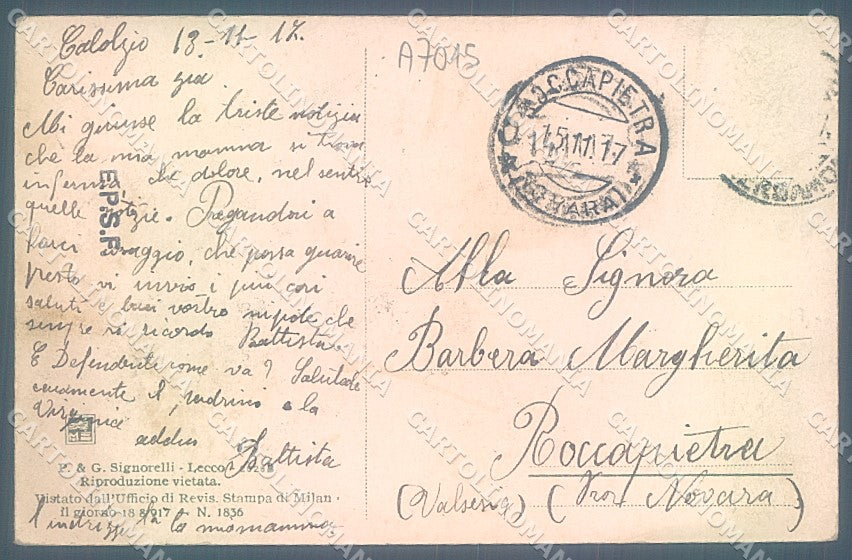 Calolzio 13-11-17.
Carissima zia
Mi giunse la triste notizia
che la mia mamma si trova
inferma che dolore, nel sentir
quelle notizie. Pregandovi a
farci coraggio, che possa guarire
presto vi invio i più cari
saluti e baci vostro nipote che
sempre vi ricorda Battista
E Defendente come va? Salutate
caramente il padrino e la
addio Battista
E.P.S.F.
P. & G. Signorelli - Lecco
Riproduzione vietata.
Vistato dall'Ufficio di Revis. Stampa di Milan
il giorno 18 8 917 - N. 1836
la mamma
A7015
ROCCAPIETRA
15.11.17
(NOVARA)
BERGAMO
Alla Signora
Barbera Margherita
Roccapietra
(Valsesia) (Prov Novara)
CARTOLINOMANIA